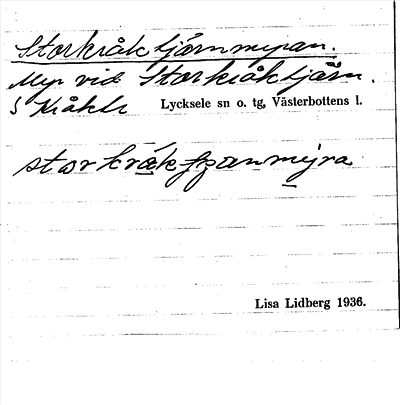 Storkråktjärnmyran.
Myr vid Storkråktjärn.
S Kråkli Lycksele sn o. tg, Västerbottens l.
storkråkʃþanmẏra
Lisa Lidberg 1936.